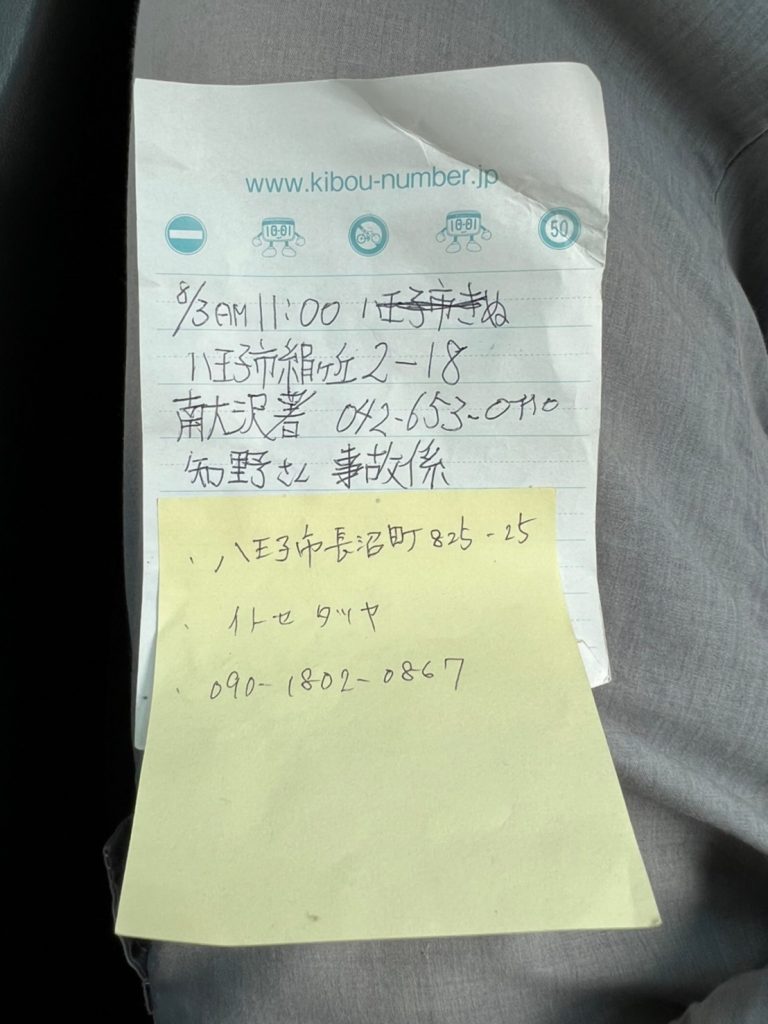 www.kibou-number.jp
10-01
10-01
50
8/3 AM 11:00 八王子市きぬ
八王子市絹ヶ丘 2-18
南大沢署 042-653-0110
知野さん 事故係
・八王子市長沼町825-25
・イトセ タツヤ
・090-1802-0867